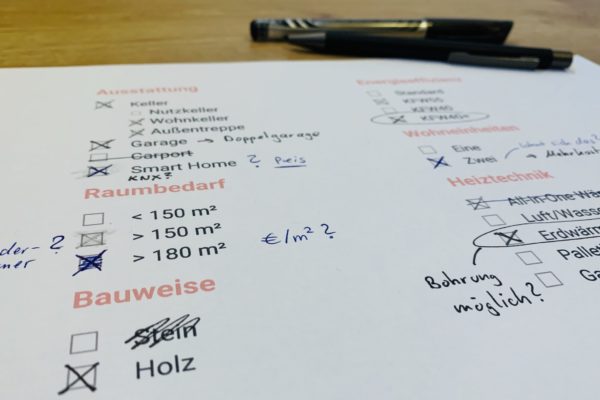 Ausstattung
Keller
Nutzkeller
Wohnkeller
Außentreppe
Garage → Doppelgarage
Carport
Smart Home ? Preis
KNX?
Raumbedarf
< 150 m²
> 150 m²
> 180 m² €/m² ?
Bauweise
Stein
Holz
Energieeffizienz
Standard
KFW55
KFW40
KFW40+
Wohneinheiten
Eine
Zwei
Heiztechnik
All-In-One
Erdwärm
Bohrung
möglich?